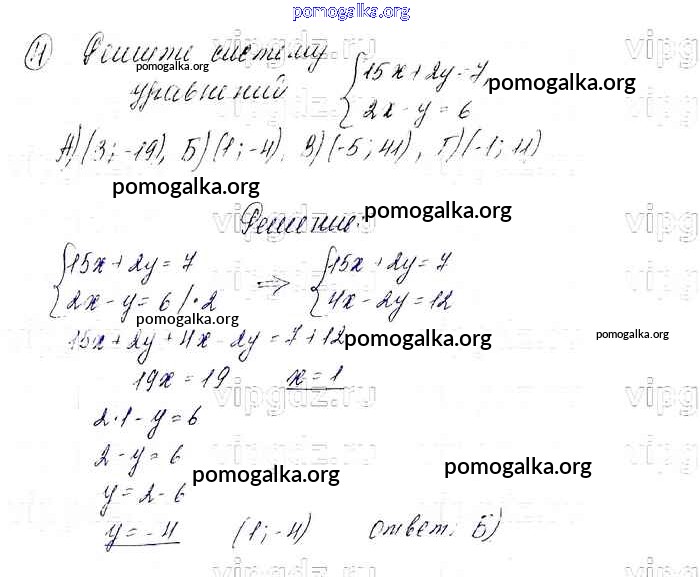 pomogalka.org
7) Решите систему уравнений { 15x + 2y = 7, 2x - y = 6
pomogalka.org pomogalka.org
А) (3; -19), Б) (1; -4), В) (-5; 41), Г) (-1; 11)
pomogalka.org
Решение: pomogalka.org
{ 15x + 2y = 7 => { 15x + 2y = 7
2x - y = 6 /·2 4x - 2y = 12
pomogalka.org
15x + 2y + 4x - 2y = 7 + 12 pomogalka.org pomogalka.org
19x = 19 x = 1
2·1 - y = 6
2 - y = 6
pomogalka.org pomogalka.org
y = 2 - 6
y = -4 (1; -4) Ответ: Б)